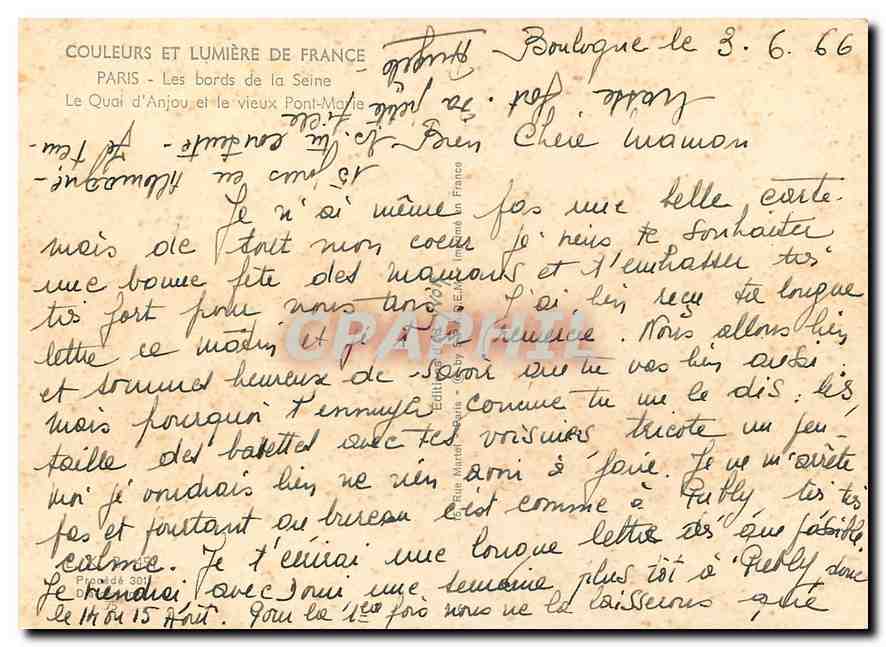 COULEURS ET LUMIÈRE DE FRANCE
PARIS - Les bords de la Seine
Le Quai d'Anjou et le vieux Pont-Marie
Boulogne le 3.6.66
Bien Chère Maman
Je n'ai même pas une belle carte
mais de tout mon coeur je viens te souhaiter
une bonne fête des mamans et t'embrasser très
très fort pour nous tous. J'ai bien reçu ta longue
lettre ce matin et je t'en remercie. Nous allons bien
et sommes heureux de savoir que tu vas bien aussi.
mais pourquoi t'ennuyer comme tu me le dis: lis,
taille des bavettes avec tes voisines tricote un peu -
moi je voudrais bien ne rien avoir à faire. Je ne m'arrête
pas et pourtant au bureau c'est comme à Publy très très
calme. Je t'écrirai une longue lettre dès que possible.
Je viendrai avec Domi une semaine plus tôt à Publy donc
le 14 ou 15 Août. Pour la 1ère fois nous ne la laisserons que
15 jours en Allemagne -
contente - Je t'em-
brasse fort. Ta petite fille
Angèle
Editions d'Art YVON
15, Rue Martel, Paris - Imprimé en France
Procédé 301
CPAPHIL